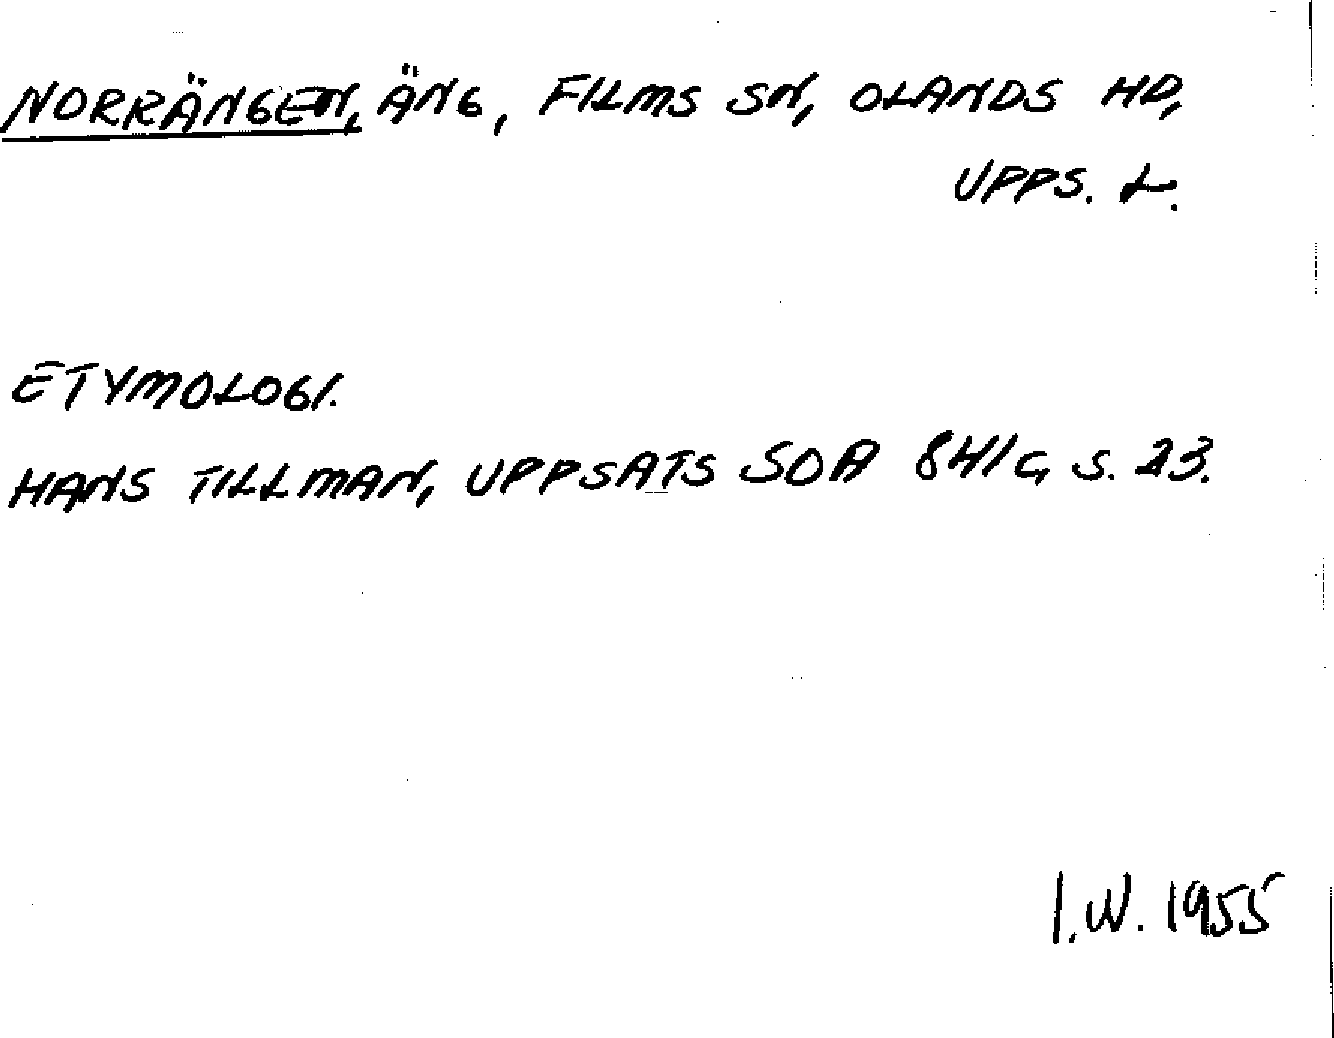 NORRÄNGEN, ÄNG, FILMS SN, OLANDS HD,
UPPS. L.
ETYMOLOGI.
HANS TILLMAN, UPPSATS SOA 841G, S. 23.
I.W. 1955